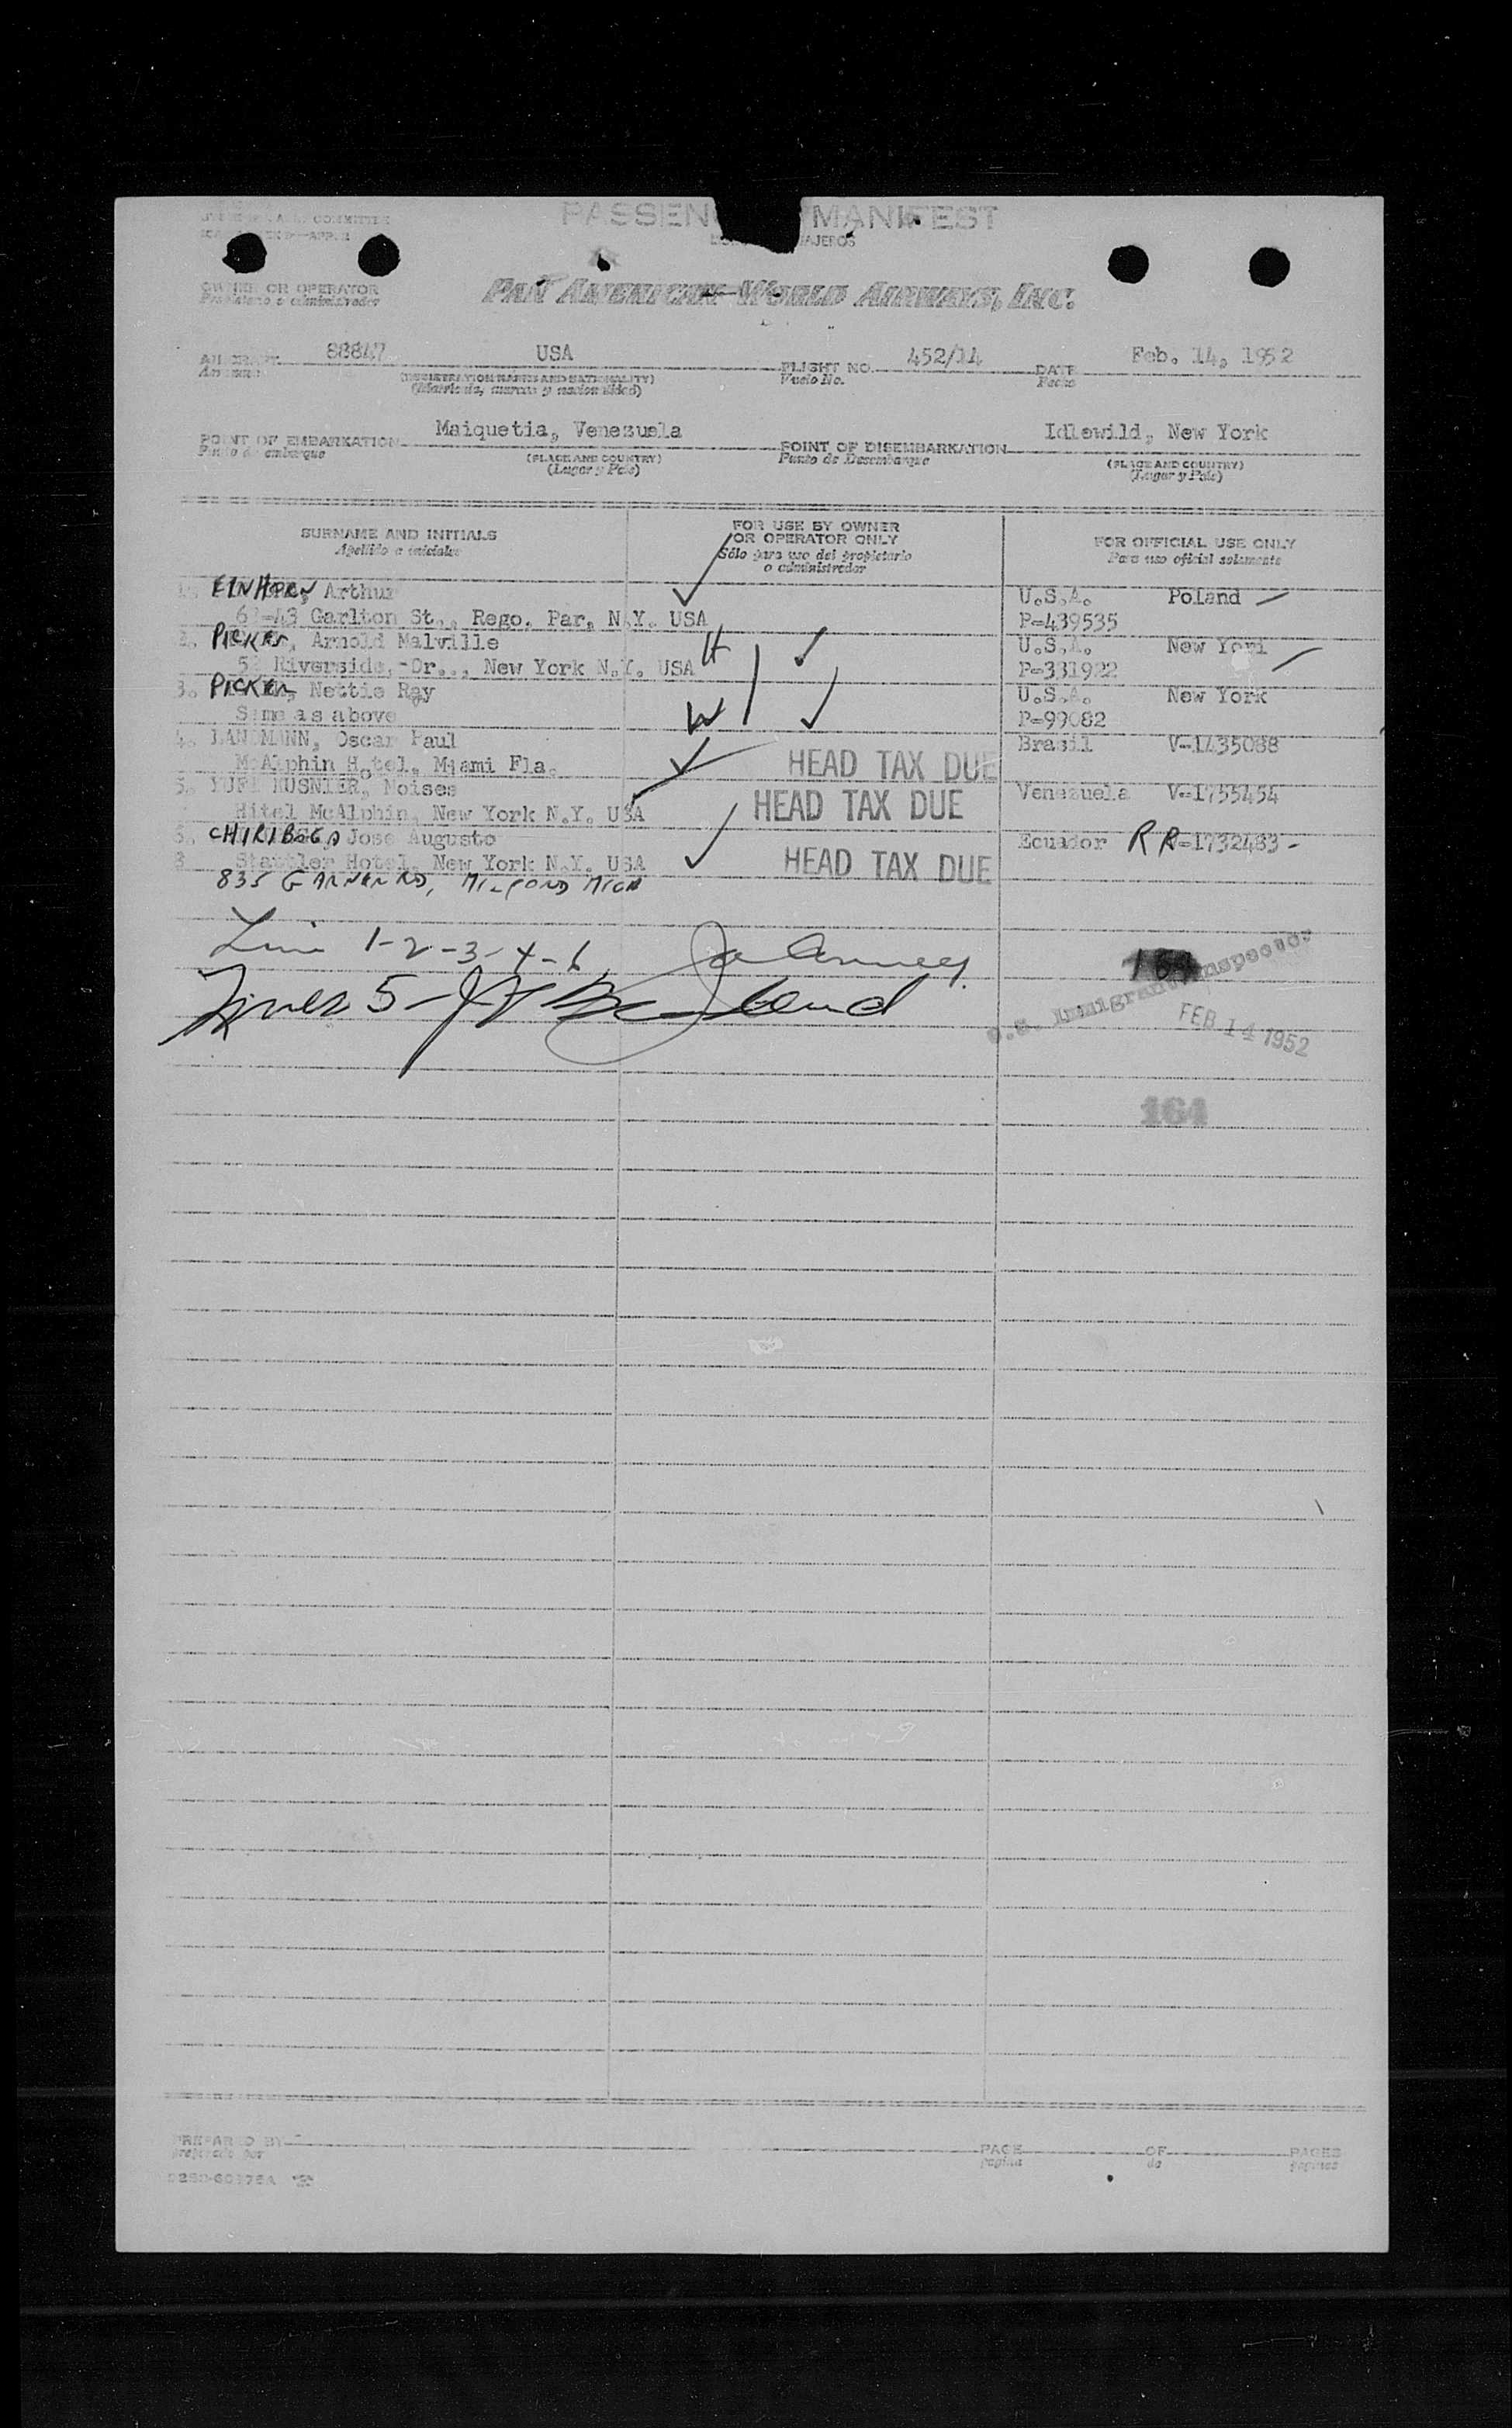 PASSEN MANIFEST
OWNER OR OPERATOR
Propietario o administrador
PAN AMERICAN WORLD AIRWAYS, INC.
88847 USA 452/14 Feb. 14, 1952
FLIGHT NO. DATE
Vuelo No. Fecha
(REGISTRATION MARKS AND NATIONALITY)
(Matricula, marcas y nacionalidad)
Maiquetia, Venezuela Idlewild, New York
POINT OF EMBARKATION POINT OF DISEMBARKATION
Punto de embarque Punto de Desembarque
(PLACE AND COUNTRY) (PLACE AND COUNTRY)
(Lugar y Pais) (Lugar y Pais)
SURNAME AND INITIALS FOR USE BY OWNER OR OPERATOR ONLY FOR OFFICIAL USE ONLY
Apellido e iniciales Sólo para uso del propietario o administrador Para uso oficial solamente
1. EINHORN, Arthur U.S.A. Poland
Garlton St., Rego. Par, N.Y. USA P-439535
2. PICKER, Arnold Malville H U.S.A. New York
Riverside, Dr.., New York N.Y. USA P-331922
3. PICKER, Nettie Ray U.S.A. New York
Same as above W P-99082
4. LANDMANN, Oscar Paul Brasil V-1435088
McAlphin Hotel, Miami Fla. HEAD TAX DUE
5. KUSNIER, Moises Venezuela V-1755454
Hitel McAlphin, New York N.Y. USA HEAD TAX DUE
6. CHIRIBOGA Jose Augusto Ecuador R R-1732483
Stattler Hotel, New York N.Y. USA HEAD TAX DUE
835 GARNER RD, MILFORD MICH
Line 1-2-3-4-6
Lines 5-
164
U.S. Immigrant Inspector
FEB 14 1952
164
PREPARED BY PAGE OF PAGES
preparado por pagina de paginas